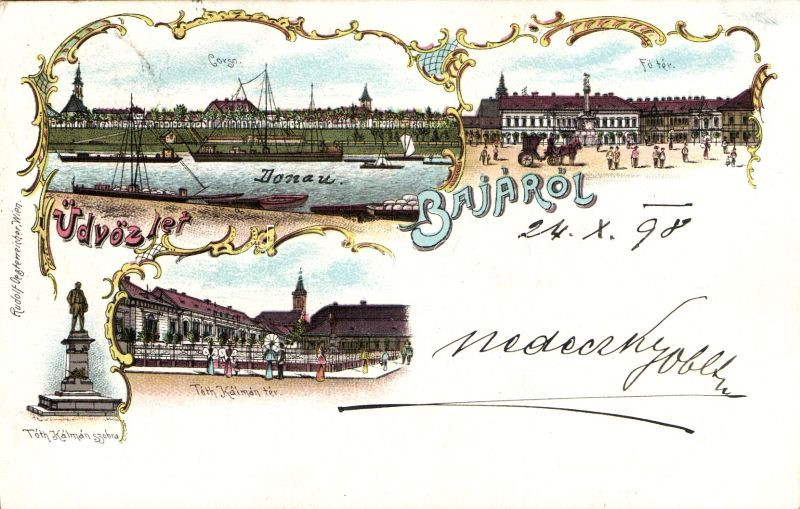 Corso.
Fő tér.
Donau.
Üdvözlet
BAJÁRÓL
24. X. 98
Rudolf Oesterreicher, Wien.
nedeczky oblt
Tóth Kálmán tér.
Tóth Kálmán szobra